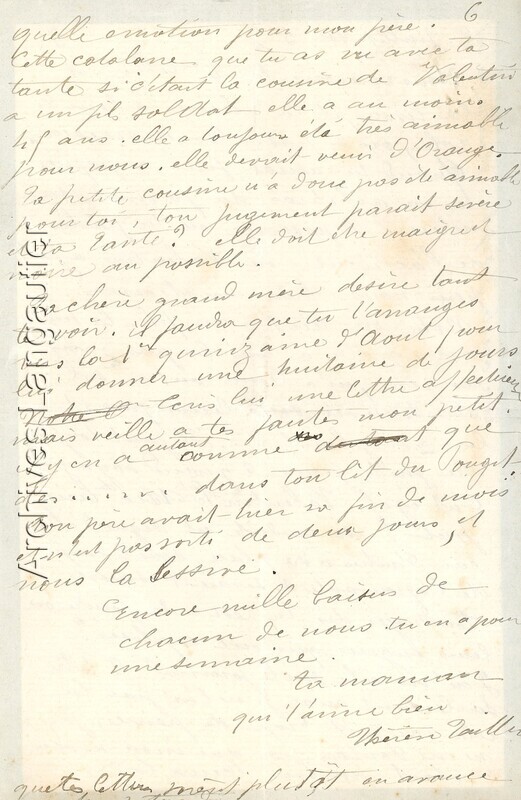 6
quelle emotion pour mon père.
Cette catalane que tu as vu avec ta
tante si c'était la cousine de Valentin
a un fils soldat elle a au moins
45 ans. elle a toujours été très aimable
pour nous. elle devait venir d'Orange.
Ta petite cousine n'a donc pas été aimable
pour toi, ton jugement parait sévère
et ta tante? elle doit être maigre et
noire au possible.
Ta chère grand mère desire tant
te voir. il faudra que tu t'arranges
vers la 1ere quinzaine d'Aout pour
lui donner une huitaine de jours
Ecris lui une lettre affectueuse
mais veille a tes fautes mon petit.
il y en a autant comme que
dans ton lit du
Ton père avait hier sa fin de mois
et n'est pas sorti de deux jours, et
nous la lessive.
Encore mille baisers de
chacun de nous tu en a pour
une semaine.
ta maman
qui t'aime bien
Thérèse
que tes lettres plutôt en avance
Archives Langautier